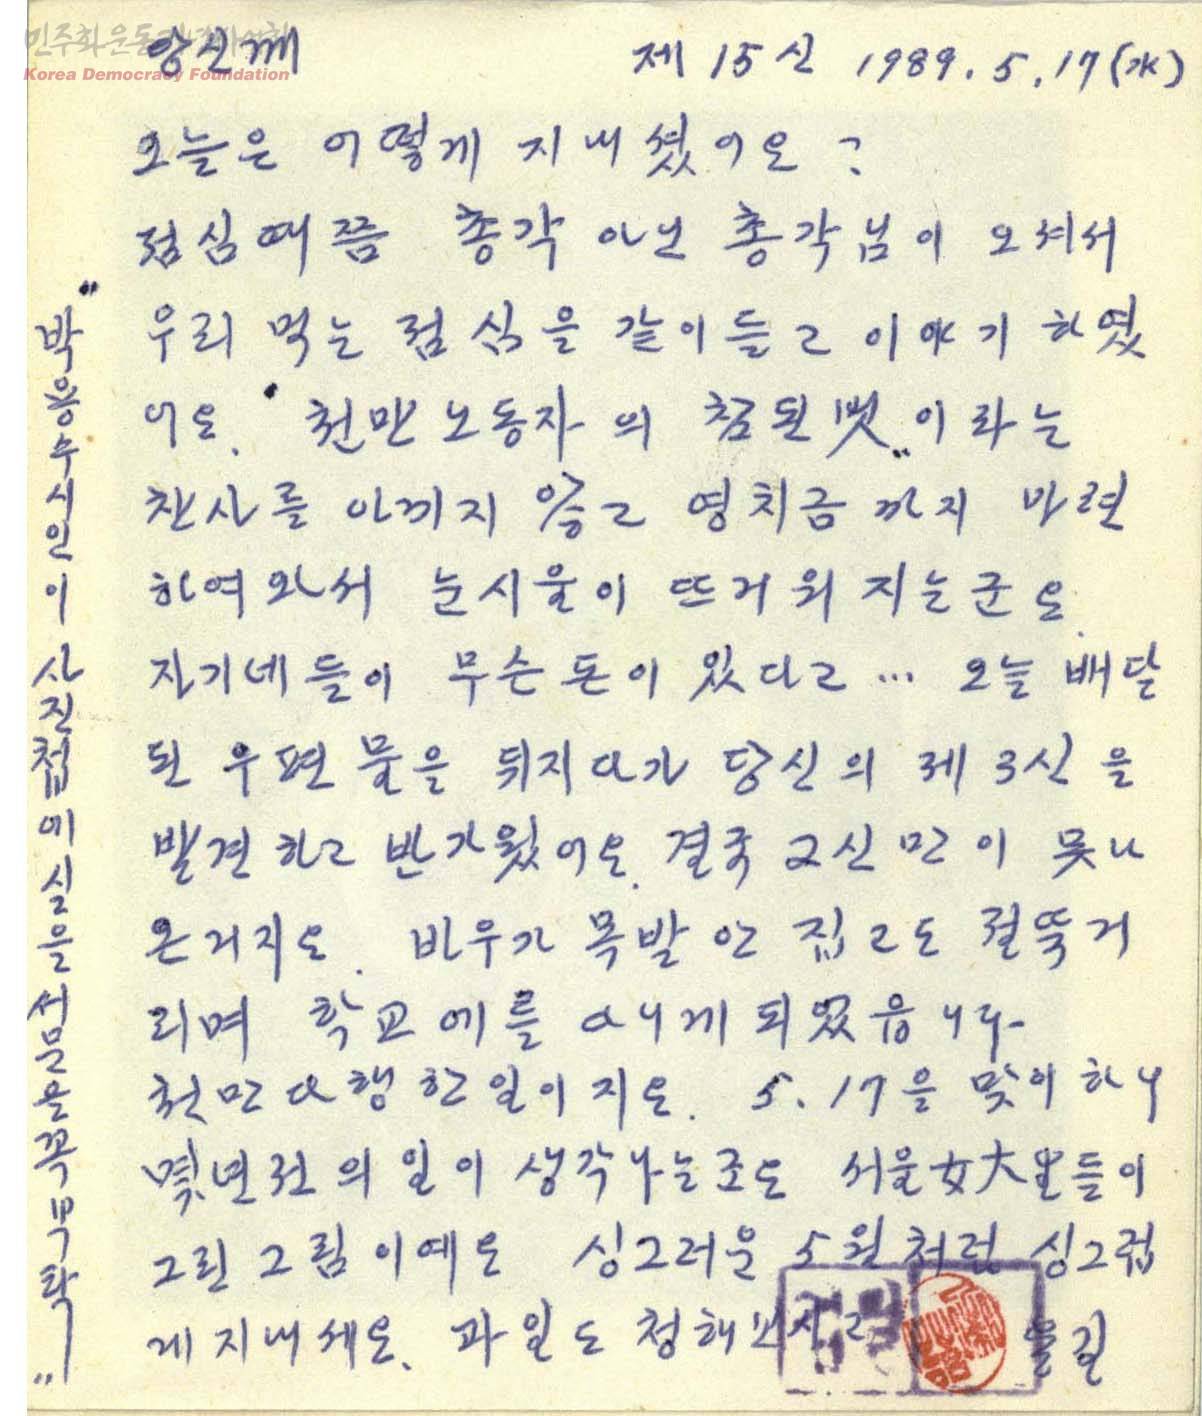 민주화운동기념사업회
Korea Democracy Foundation
당신께 제 15신 1989. 5. 17(水)
오늘은 어떻게 지내셨어요?
점심때쯤 총각 아닌 총각님이 오셔서
우리 먹는 점심을 같이들고 이야기 하였
어요. "천만 노동자의 참된벗"이라는
찬사를 아끼지 않고 영치금까지 마련
하여와서 눈시울이 뜨거워 지는군요.
자기네들이 무슨돈이 있다고... 오늘 배달
된 우편물을 뒤지다가 당신의 제 3신을
발견하고 반가웠어요. 결국 2신만이 못나
온거지요. 바우가 목발 안 집고도 절뚝거
리며 학교에를 다니게 되었읍니다.
천만다행한일이지요. 5. 17을 맞이하니
몇년전의 일이 생각나는군요 서울女大生들이
그린 그림이예요 싱그러운 5월처럼 싱그럽
게 지내세요. 과일도 청해보시고
돌길
"박용수시인이 사진첩에실을서문을꼭부탁"